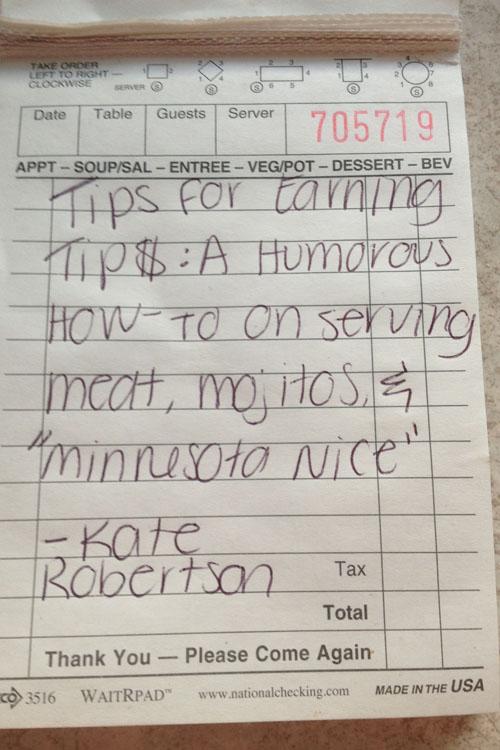 TAKE ORDER
LEFT TO RIGHT —
CLOCKWISE
SERVER S
1 2
S
2 3
1 4
S
2 3
1 4
6 5
S
2 3
1 4
S
4
3
2 7
1 8
S
Date Table Guests Server 705719
APPT – SOUP/SAL – ENTREE – VEG/POT – DESSERT – BEV
Tips for Earning
Tip$: A Humorous
How-to on serving
meat, mojitos, &
"minnesota Nice"
- Kate
Robertson Tax
Total
Thank You — Please Come Again
3516 WAITRPAD™ www.nationalchecking.com MADE IN THE USA